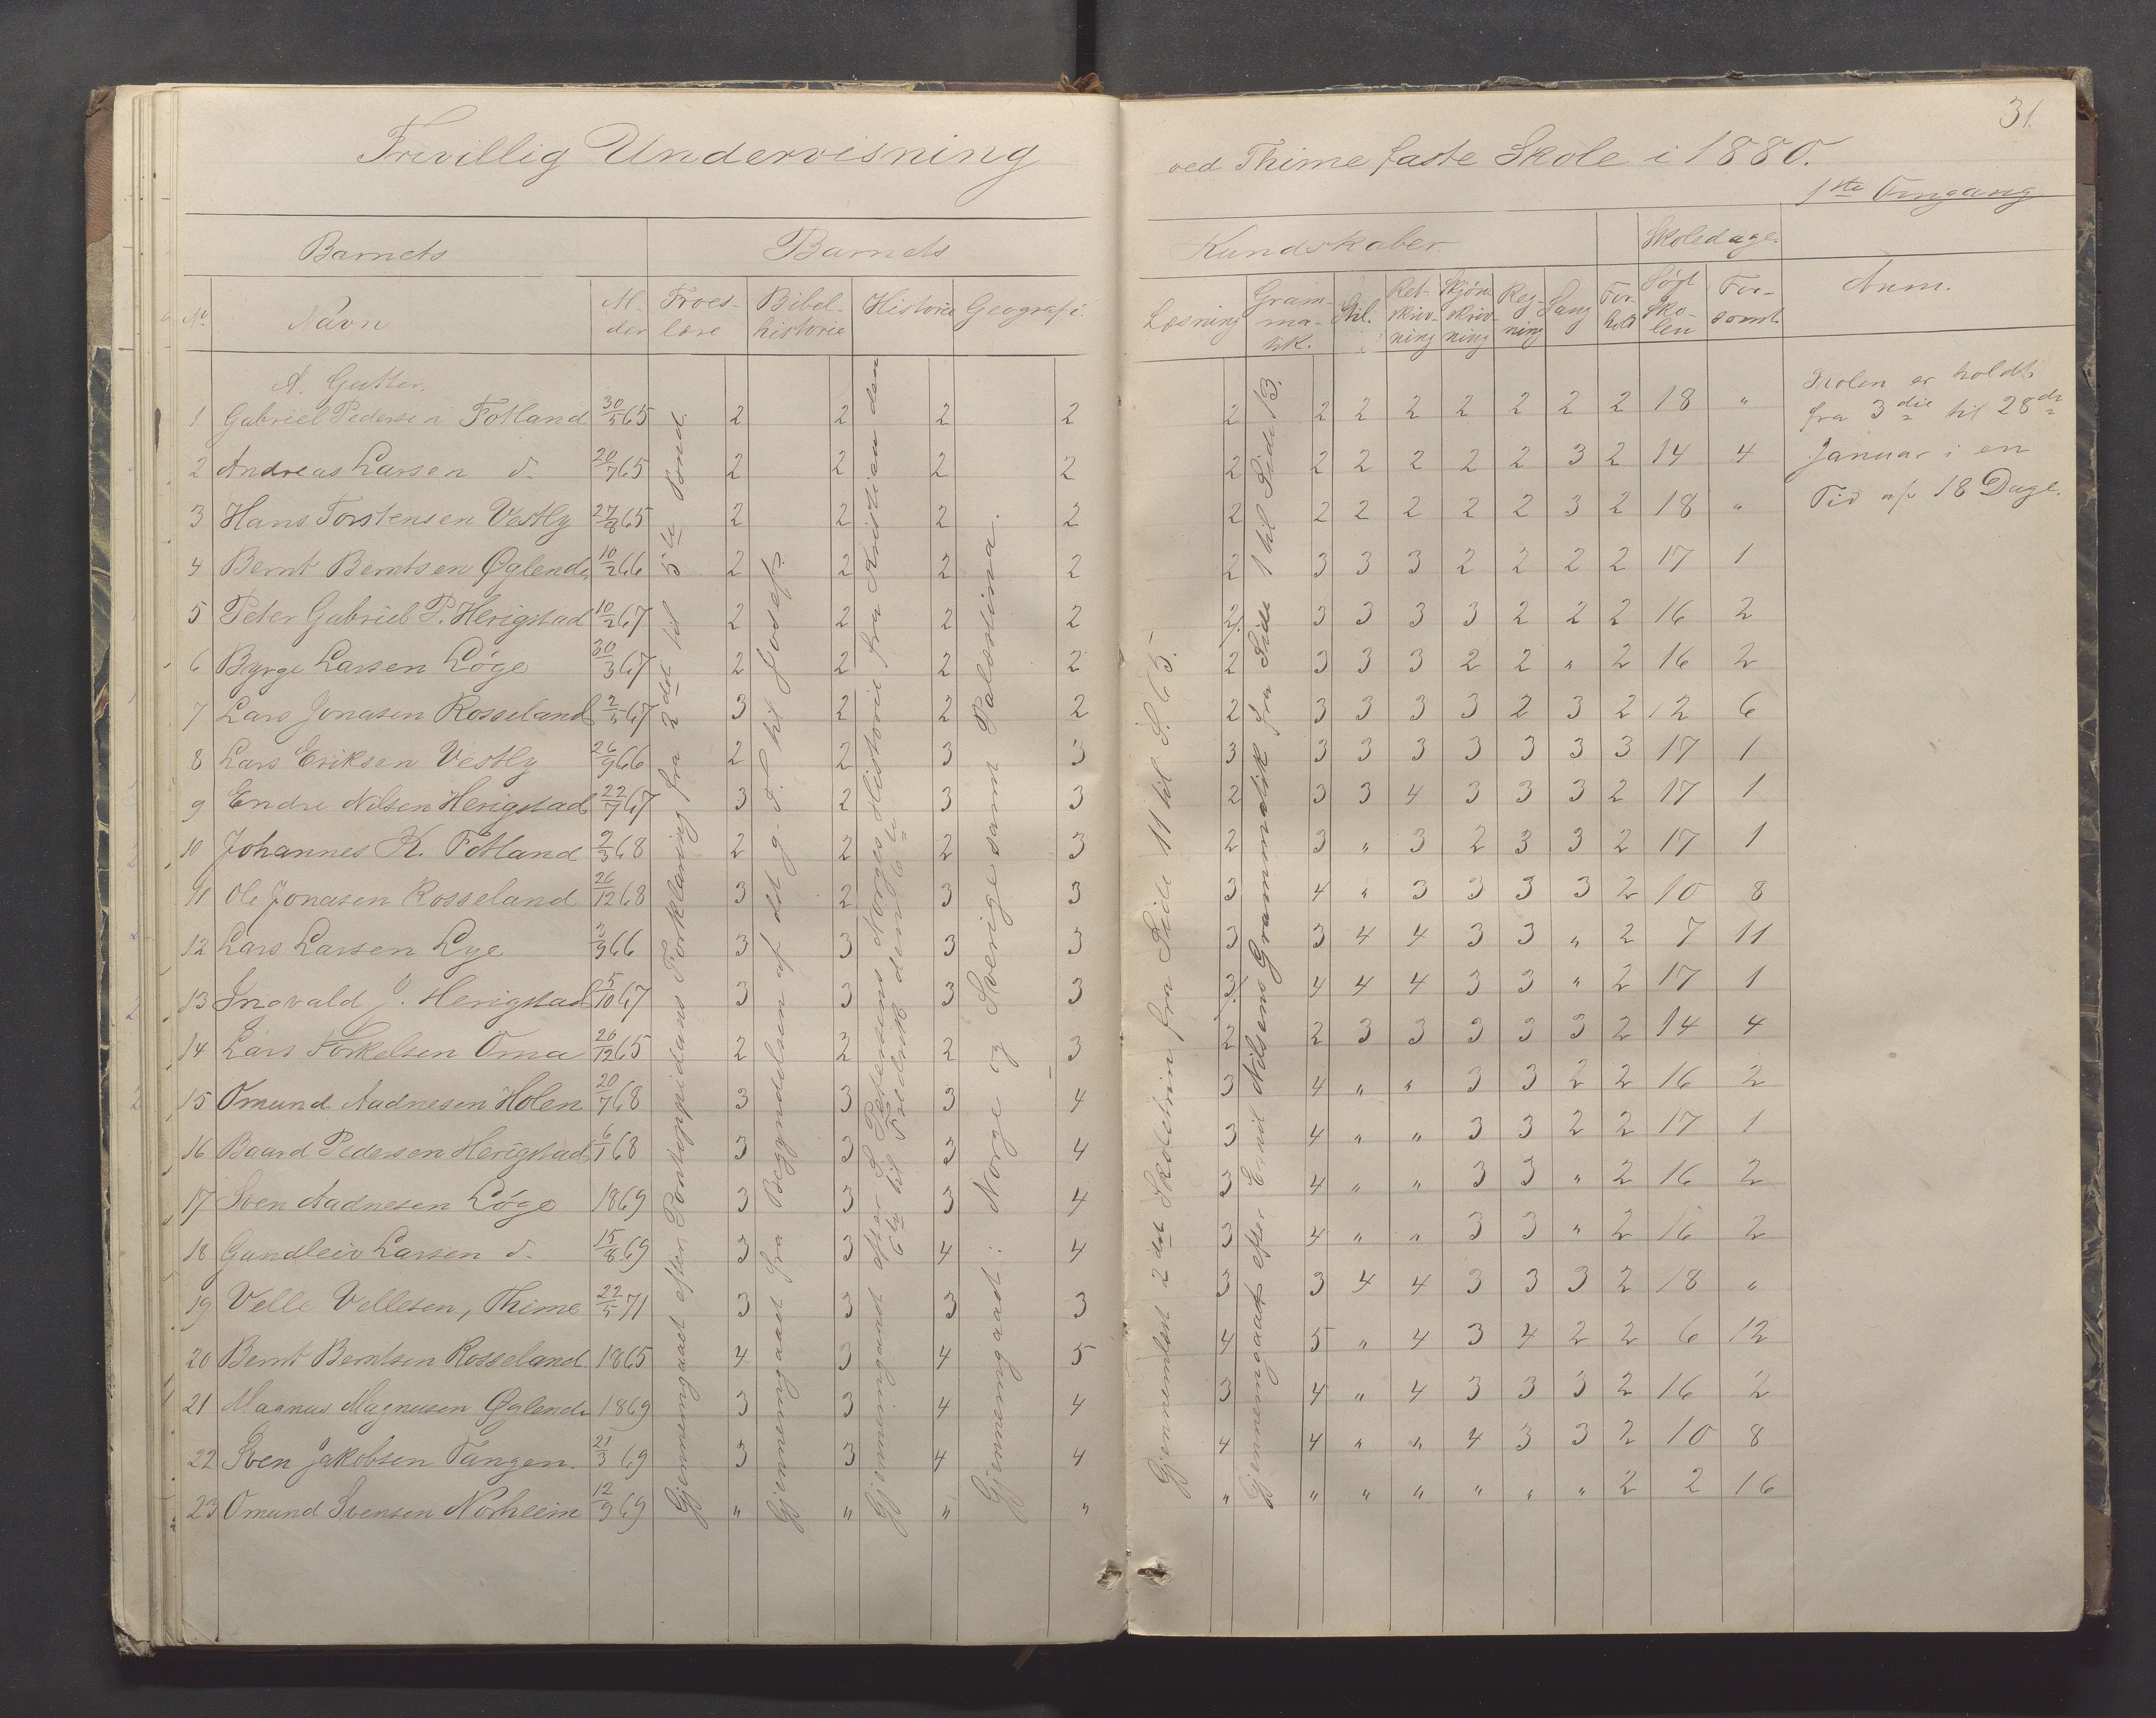 31.
Frivillig Undervisning
ved Thime faste Skole i 1880.
1ste Omgang
Barnets
Barnets
Kundskaber
Skoledage.
No
Navn
Al-
der
Troes-
lære
Bibel-
historie
Historie
Geografi.
Læsning
Gram-
ma-
tik.
Stil.
Ret-
skriv-
ning
Skjøn-
skriv-
ning
Reg-
ning
Sang
For-
hold
Søgt
Sko-
len
For-
sømt.
Anm.
A. Gutter.
1 Gabriel Pedersen Fotland 30/5 65 2 2 2 2 2 2 2 2 2 2 2 2 18 "
2 Andreas Larsen d. 20/7 65 2 2 2 2 2 2 2 2 2 2 3 2 14 4
3 Hans Torstensen Vestly 27/8 65 2 2 2 2 2 2 2 2 2 2 3 2 18 "
4 Bernt Berntsen Øglend 10/2 66 2 2 2 2 2 3 3 3 2 2 2 2 17 1
5 Peter Gabriel P. Herigstad 10/2 67 2 2 2 2 2 3 3 3 3 2 2 2 16 2
6 Byrge Larsen Løge 30/3 67 2 2 2 2 2 3 3 3 2 2 " 2 16 2
7 Lars Jonasen Rosseland 2/5 67 3 2 2 2 2 3 3 3 3 2 3 2 12 6
8 Lars Eriksen Vestly 26/9 66 2 2 3 3 3 3 3 3 3 3 3 3 17 1
9 Endre Nilsen Herigstad 22/7 67 3 2 3 3 2 3 3 4 3 3 3 2 17 1
10 Johannes K. Fotland 9/3 68 2 2 2 3 2 3 " 3 2 3 3 2 17 1
11 Ole Jonasen Rosseland 26/12 68 3 2 3 3 3 4 " 3 3 3 3 2 10 8
12 Lars Larsen Lye 3/9 66 3 3 3 3 3 3 4 4 3 3 " 2 7 11
13 Ingvald J. Herigstad 5/10 67 3 3 3 3 3 4 4 4 3 3 " 2 17 1
14 Lars Torkelsen Oma 20/12 65 2 2 2 3 2 2 3 3 3 3 3 2 14 4
15 Omund Aadnesen Holen 20/7 68 3 3 3 4 3 4 " " 3 3 2 2 16 2
16 Baard Pedersen Herigstad 6/1 68 3 3 3 4 3 4 " " 3 3 2 2 17 1
17 Sven Aadnesen Løge 1869 3 3 3 4 3 4 " " 3 3 " 2 16 2
18 Gundleiv Larsen d. 15/8 69 3 3 4 4 3 4 " " 3 3 " 2 16 2
19 Velle Vellesen, Thime 22/5 71 3 3 3 3 3 3 4 4 3 3 3 2 18 "
20 Bernt Berntsen Rosseland 1865 4 3 4 5 4 5 " 4 3 4 2 2 6 12
21 Magnus Magnusen Øglend 1869 3 3 4 4 3 4 " 4 3 3 3 2 16 2
22 Sven Jakobsen Tungen. 21/3 69 3 3 4 4 4 4 " " 4 3 3 2 10 8
23 Omund Svensen Norheim 12/9 69 " " " " " " " " " " " 2 2 16
Gjennemgaaet efter Pontoppidans Forklaring fra 2det til 5te Bud.
Gjennemgaaet fra Begyndelsen af det g. T. til Josef.
Gjennemgaaet efter S. Petersens Norges Historie fra Kristian den
6te til Fredrik den 6te
Gjennemgaaet: Norge og Sverige samt Palæstina.
Gjennemlæst 2det Skoletrin fra Side 11 til S. 65.
Gjennemgaaet efter Emil Nilsens Grammatik fra Side 1 til Side 13.
Skolen er holdt
fra 3die til 28de
Januar i en
Tid af 18 Dage.